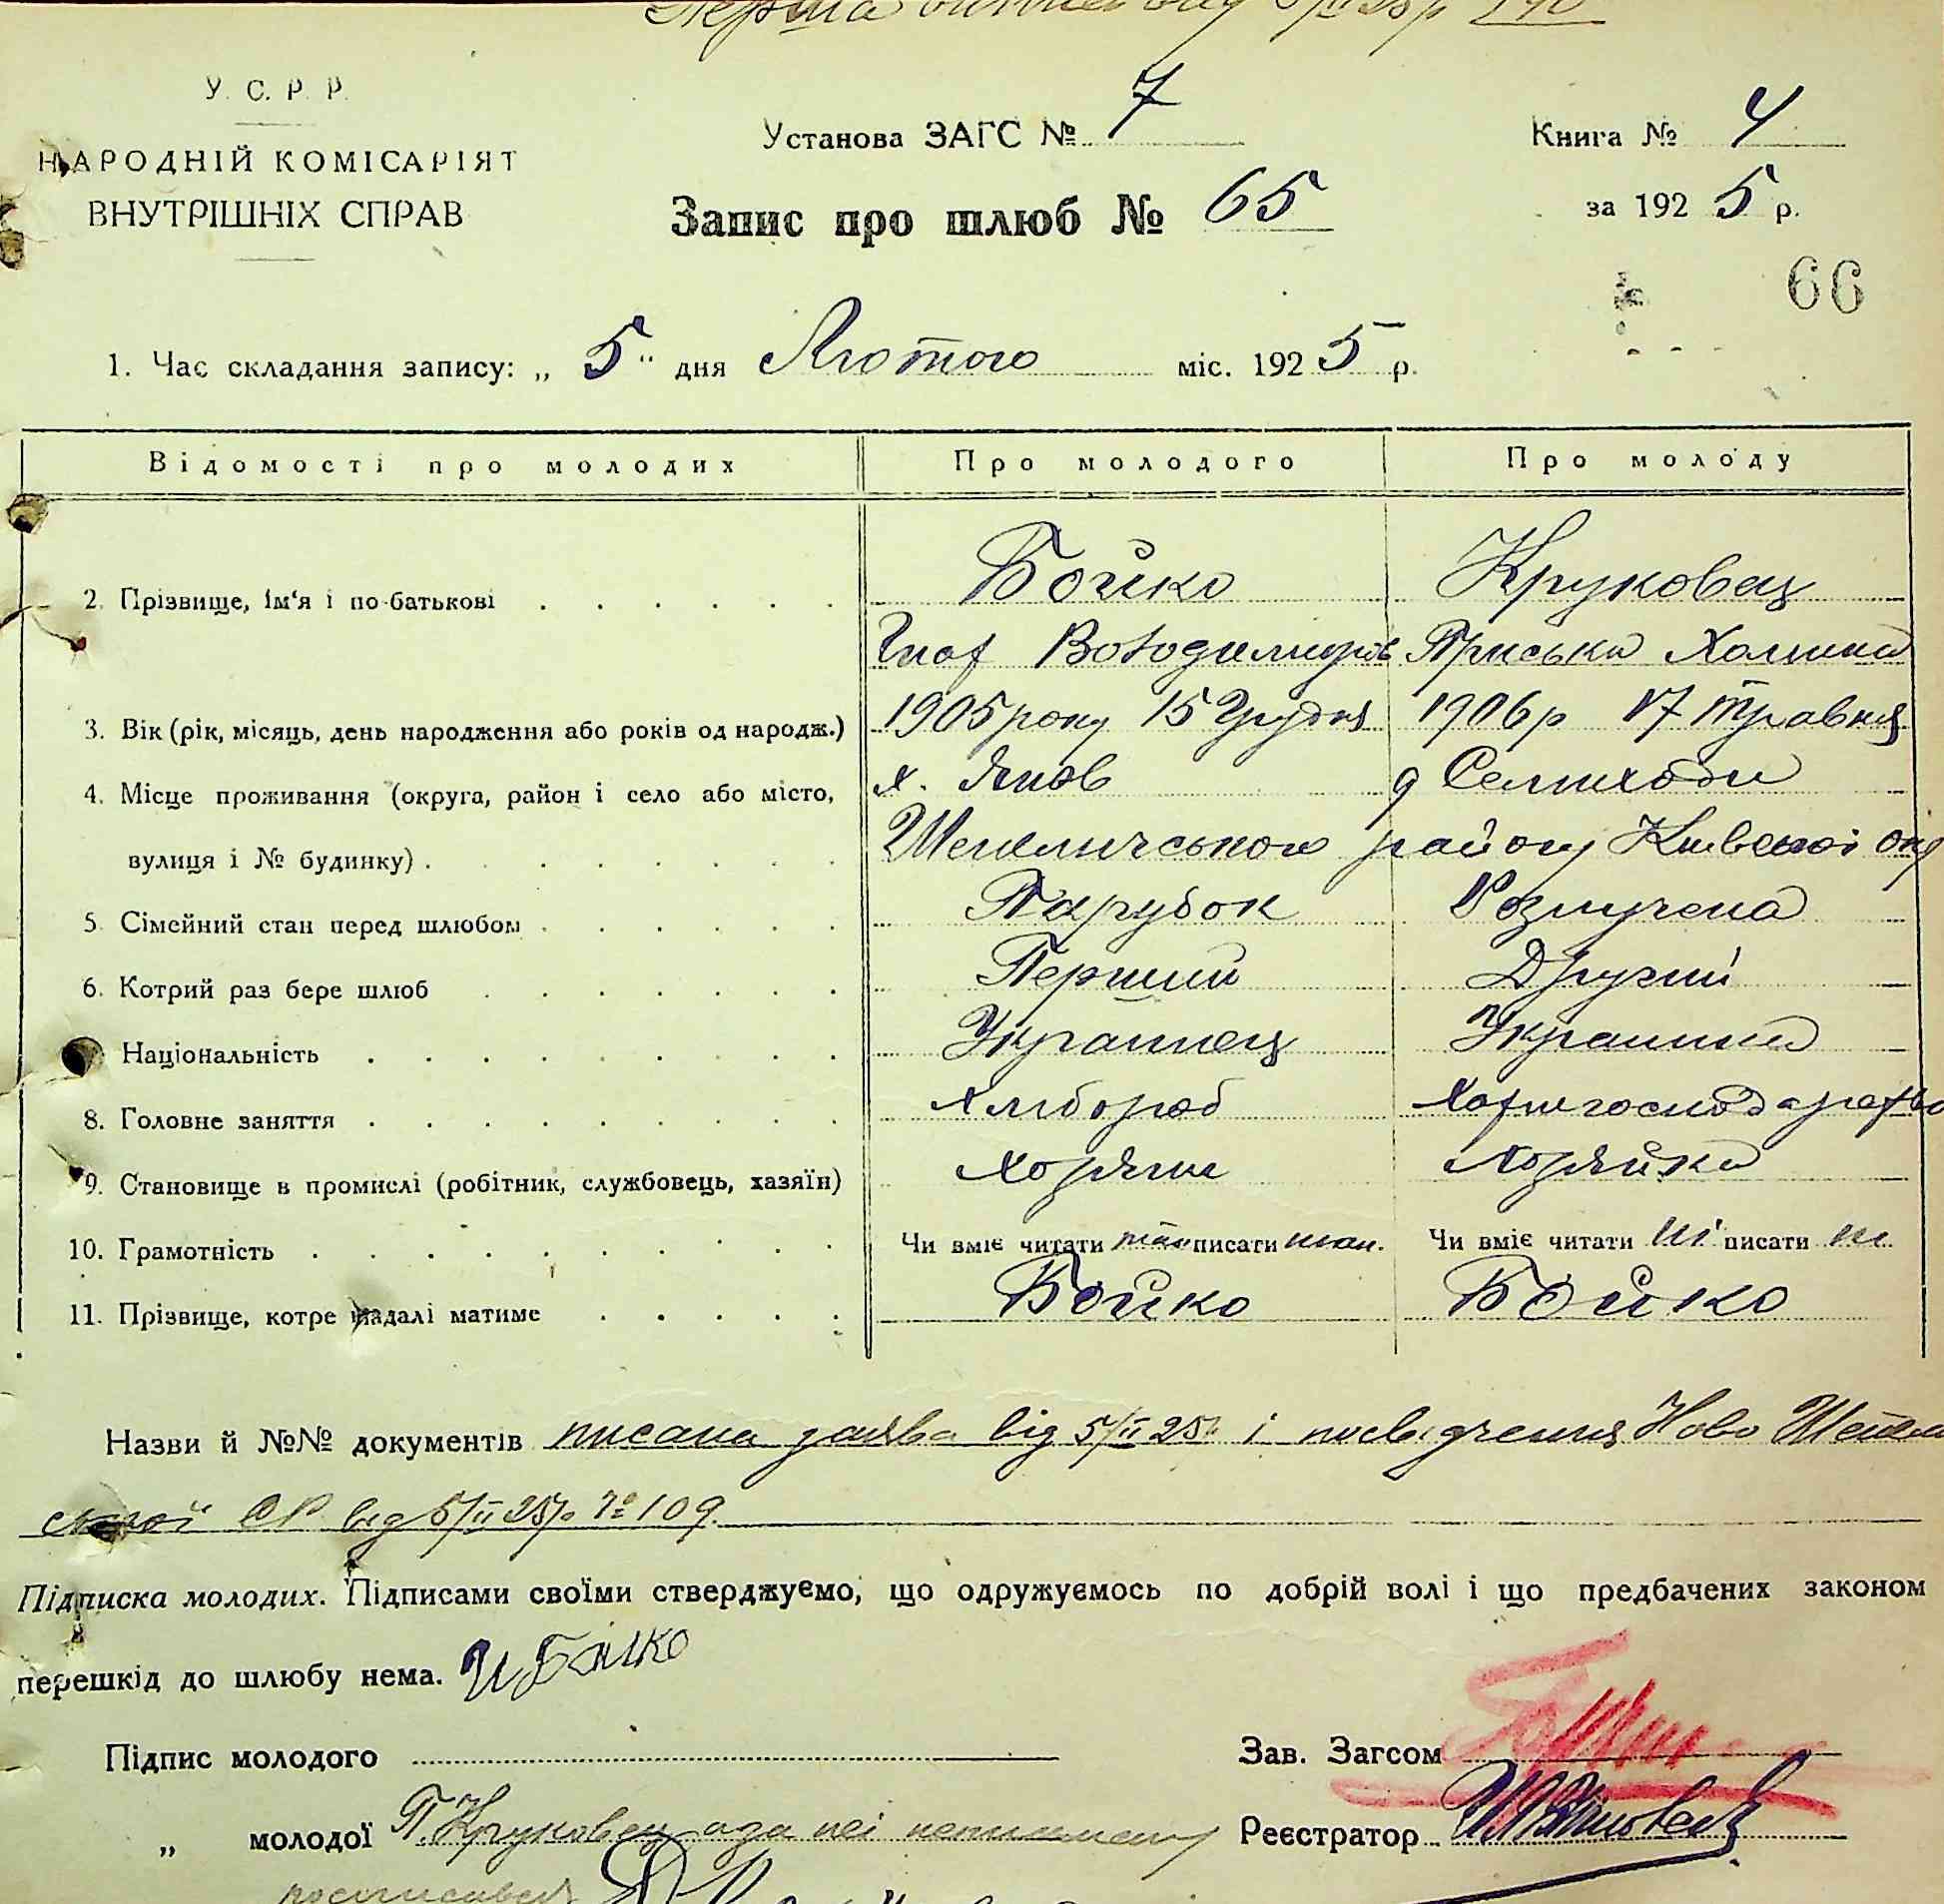 Перша
У. С. Р. Р.
НАРОДНІЙ КОМІСАРІЯТ
ВНУТРІШНІХ СПРАВ
Установа ЗАГС № 7
Книга № 4
Запис про шлюб № 65
за 1925 р.
66
1. Час складання запису: „ 5 “ дня Лютого міс. 1925 р.
Відомості про молодих Про молодого Про молоду
2. Прізвище, ім'я і по-батькові Бойко Круковец
Володимиров Приська Хомина
3. Вік (рік, місяць, день народження або років од народж.) 1905 року 15 Грудня 1906 р 17 травня
4. Місце проживання (округа, район і село або місто, х. д
вулиця і № будинку) Шепеличського району Київської окр
5. Сімейний стан перед шлюбом Парубок Розлучена
6. Котрий раз бере шлюб Перший Другий
Національність Украинец Украинка
8. Головне заняття Хлібороб
9. Становище в промислі (робітник, службовець, хазяїн) Хозяин Хозяйка
10. Грамотність Чи вміє читати писати Чи вміє читати ні писати ні
11. Прізвище, котре надалі матиме Бойко Бойко
Назви й №№ документів писана заява від 5/II 25 і посвідчення Ново
від 5/II 25р № 109.
Підписка молодих. Підписами своїми стверджуємо, що одружуємось по добрій волі і що предбачених законом
перешкід до шлюбу нема. И Бойко
Підпис молодого
Зав. Загсом
„ молодої П. Круковец а за неї
Реєстратор